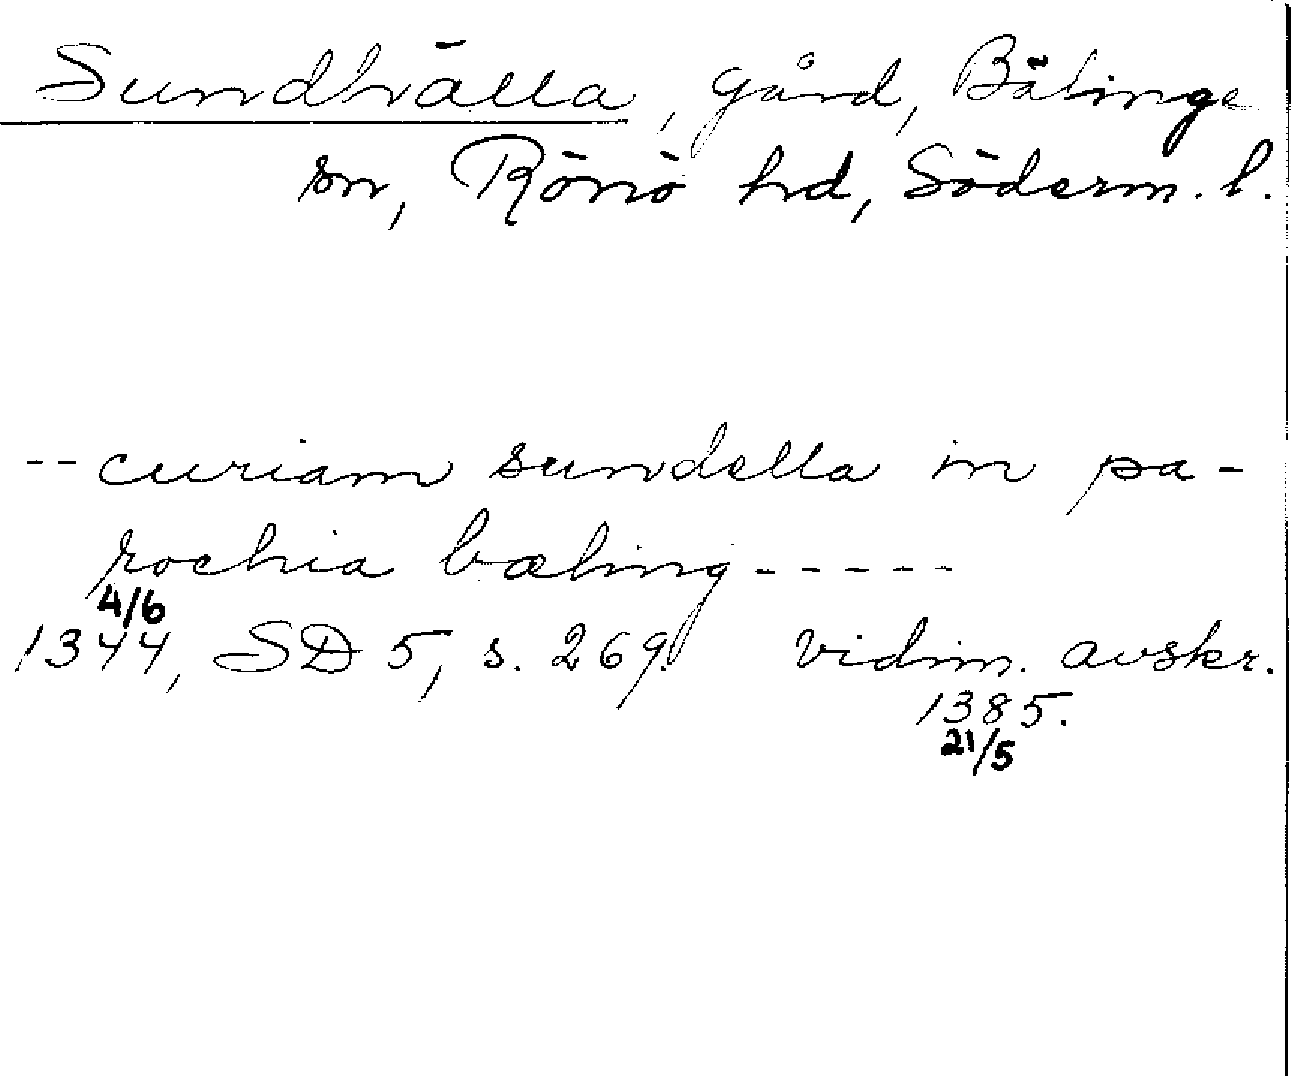 Sundhälla, gård, Bälinge
sn, Rönö hd, Söderm. l.
-- curiam sundella in pa-
rochia bæling-----
4/6
1344, SD 5, s. 269. vidim. avskr.
1385.
21/5